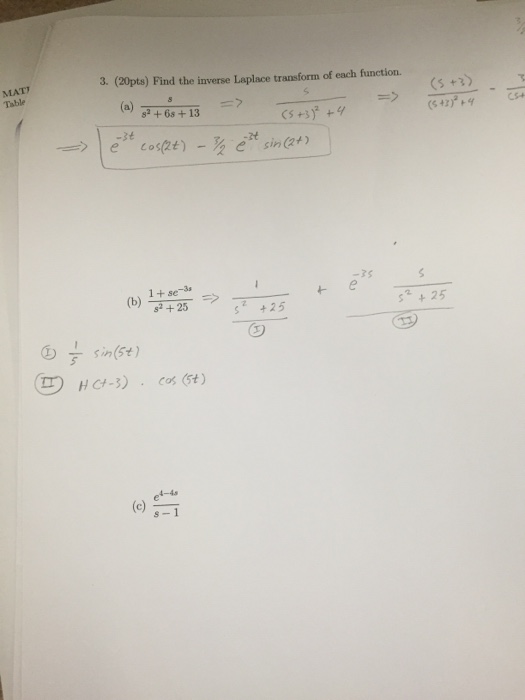 MAT
Table
3. (20pts) Find the inverse Laplace transform of each function.
(a) s / (s² + 6s + 13) => s / ((s+3)² + 4) => (s+3) / ((s+3)² + 4) - 3 / (s+
=> e^(-3t) cos(2t) - 3/2 e^(-3t) sin(2t)
(b) (1 + se^(-3s)) / (s² + 25) => 1 / (s² + 25) + e^(-3s) s / (s² + 25)
(I) (II)
(I) 1/5 sin(5t)
(II) H(t-3) . cos(5t)
(c) e^(4-4s) / (s - 1)